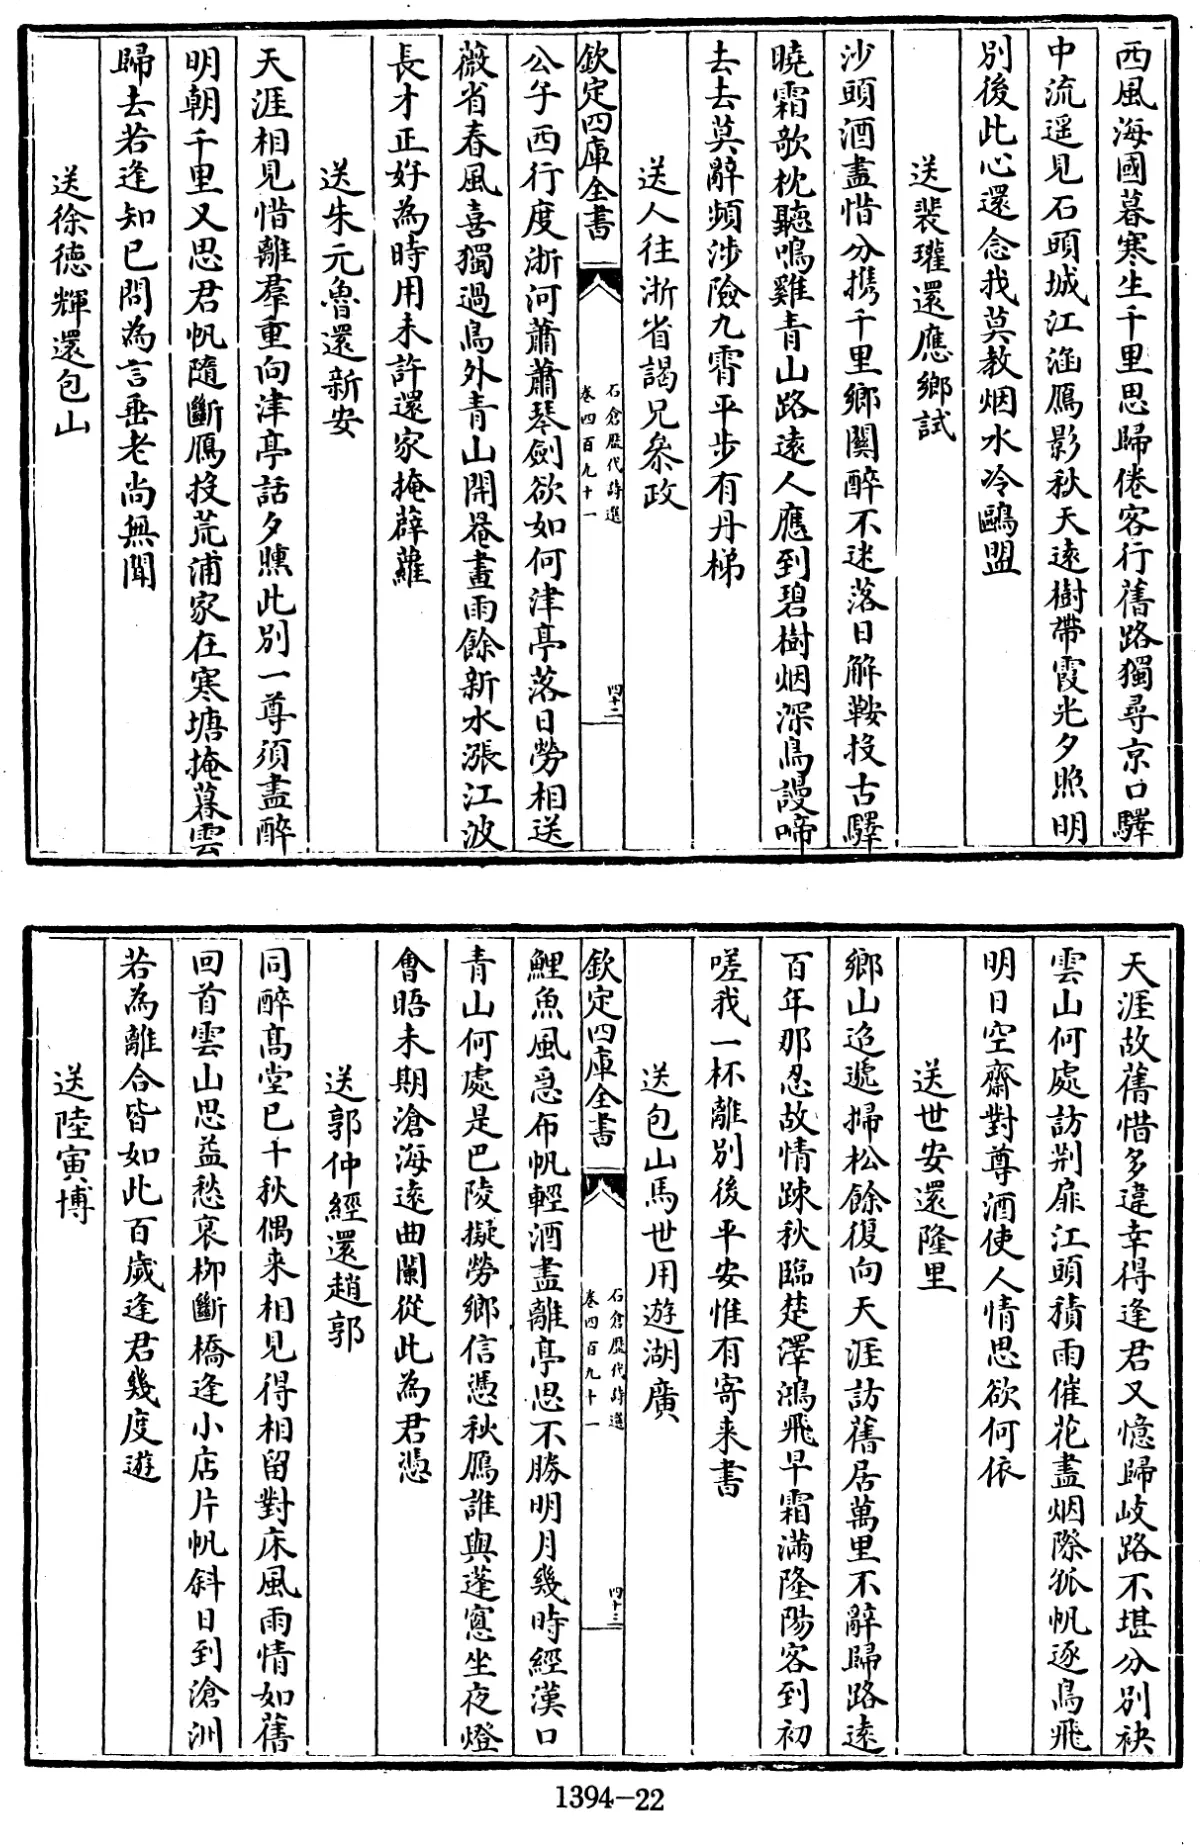 西風海國暮寒生千里思歸倦客行舊路獨尋京口驛
中流遥見石頭城江涵鴈影秋天遠樹帶霞光夕照明
別後此心還念我莫教烟水冷鷗盟
送裴瓘還應鄉試
沙頭酒盡惜分攜千里鄉關醉不迷落日解鞍投古驛
曉霜欹枕聽鳴雞青山路遠人應到碧樹烟深鳥謾啼
去去莫辭頻涉險九霄平步有丹梯
送人往浙省謁兄參政
欽定四庫全書
石倉歷代詩選
卷四百九十一
四十二
公子西行度浙河蕭蕭琴劍欲如何津亭落日勞相送
薇省春風喜獨過鳥外青山開罨畫雨餘新水漲江波
長才正好為時用未許還家掩薜蘿
送朱元魯還新安
天涯相見惜離羣重向津亭話夕曛此別一尊須盡醉
明朝千里又思君帆隨斷鴈投荒浦家在寒塘掩暮雲
歸去若逢知已問為言垂老尚無聞
送徐德輝還包山
天涯故舊惜多違幸得逢君又憶歸岐路不堪分別袂
雲山何處訪荆扉江頭積雨催花盡烟際孤帆逐鳥飛
明日空齋對尊酒使人情思欲何依
送世安還隆里
鄉山迢遞掃松餘復向天涯訪舊居萬里不辭歸路遠
百年那忍故情踈秋臨楚澤鴻飛早霜滿隆陽客到初
嗟我一杯離別後平安惟有寄来書
送包山馬世用遊湖廣
欽定四庫全書
石倉歷代詩選
卷四百九十一
四十三
鯉魚風急布帆輕酒盡離亭思不勝明月幾時經漢口
青山何處是巴陵擬勞鄉信憑秋鴈誰與蓬窻坐夜燈
會晤未期滄海遠曲闌從此為君憑
送郭仲經還趙郭
同醉髙堂已十秋偶来相見得相留對床風雨情如舊
回首雲山思益愁衰柳斷橋逢小店片帆斜日到滄洲
若為離合皆如此百歲逢君幾度遊
送陸寅博
1394-22